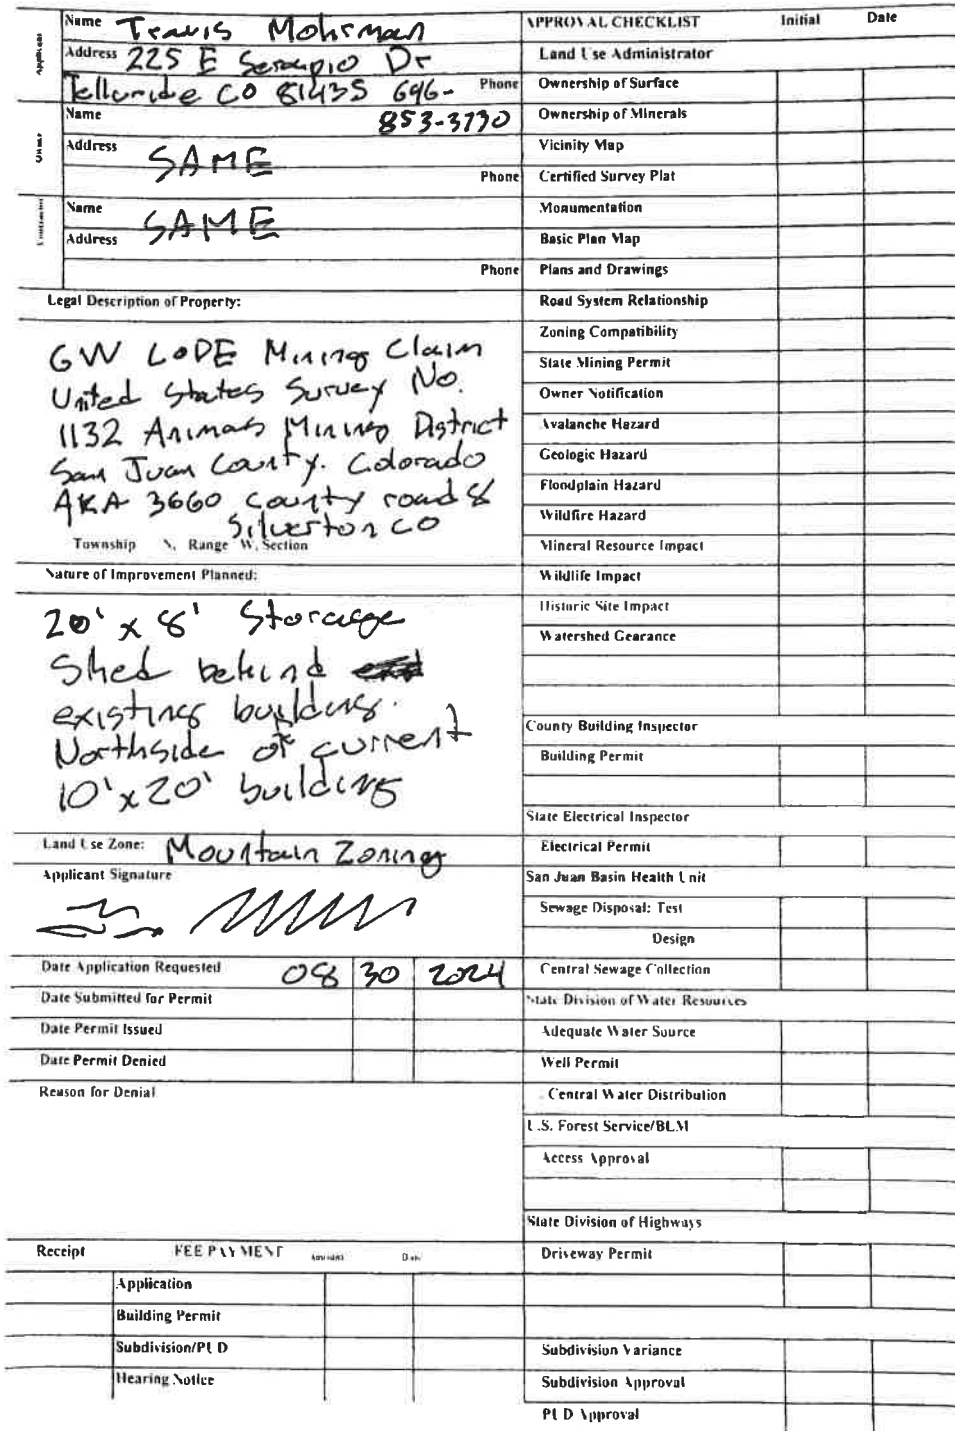 Applicant
Name Travis Mohrman
Address 225 E Serapio Dr
Telluride CO 81435 646- Phone
853-3730
Owner
Name
Address SAME
Phone
Name SAME
Address
Phone
Legal Description of Property:
GW LODE Mining Claim
United States Survey No.
1132 Animas Mining District
San Juan County. Colorado
AKA 3660 county road 8
Silverton CO
Township N, Range W, Section
Nature of Improvement Planned:
20' x 8' Storage
Shed behind
existing building.
Northside of current
10'x20' building
Land Use Zone: Mountain Zoning
Applicant Signature
Date Application Requested 08 30 2024
Date Submitted for Permit
Date Permit Issued
Date Permit Denied
Reason for Denial
Receipt FEE PAYMENT Amount Date
Application
Building Permit
Subdivision/PUD
Hearing Notice
APPROVAL CHECKLIST Initial Date
Land Use Administrator
Ownership of Surface
Ownership of Minerals
Vicinity Map
Certified Survey Plat
Monumentation
Basic Plan Map
Plans and Drawings
Road System Relationship
Zoning Compatibility
State Mining Permit
Owner Notification
Avalanche Hazard
Geologic Hazard
Floodplain Hazard
Wildfire Hazard
Mineral Resource Impact
Wildlife Impact
Historic Site Impact
Watershed Gearance
County Building Inspector
Building Permit
State Electrical Inspector
Electrical Permit
San Juan Basin Health Unit
Sewage Disposal: Test
Design
Central Sewage Collection
State Division of Water Resources
Adequate Water Source
Well Permit
Central Water Distribution
U.S. Forest Service/BLM
Access Approval
State Division of Highways
Driveway Permit
Subdivision Variance
Subdivision Approval
PUD Approval